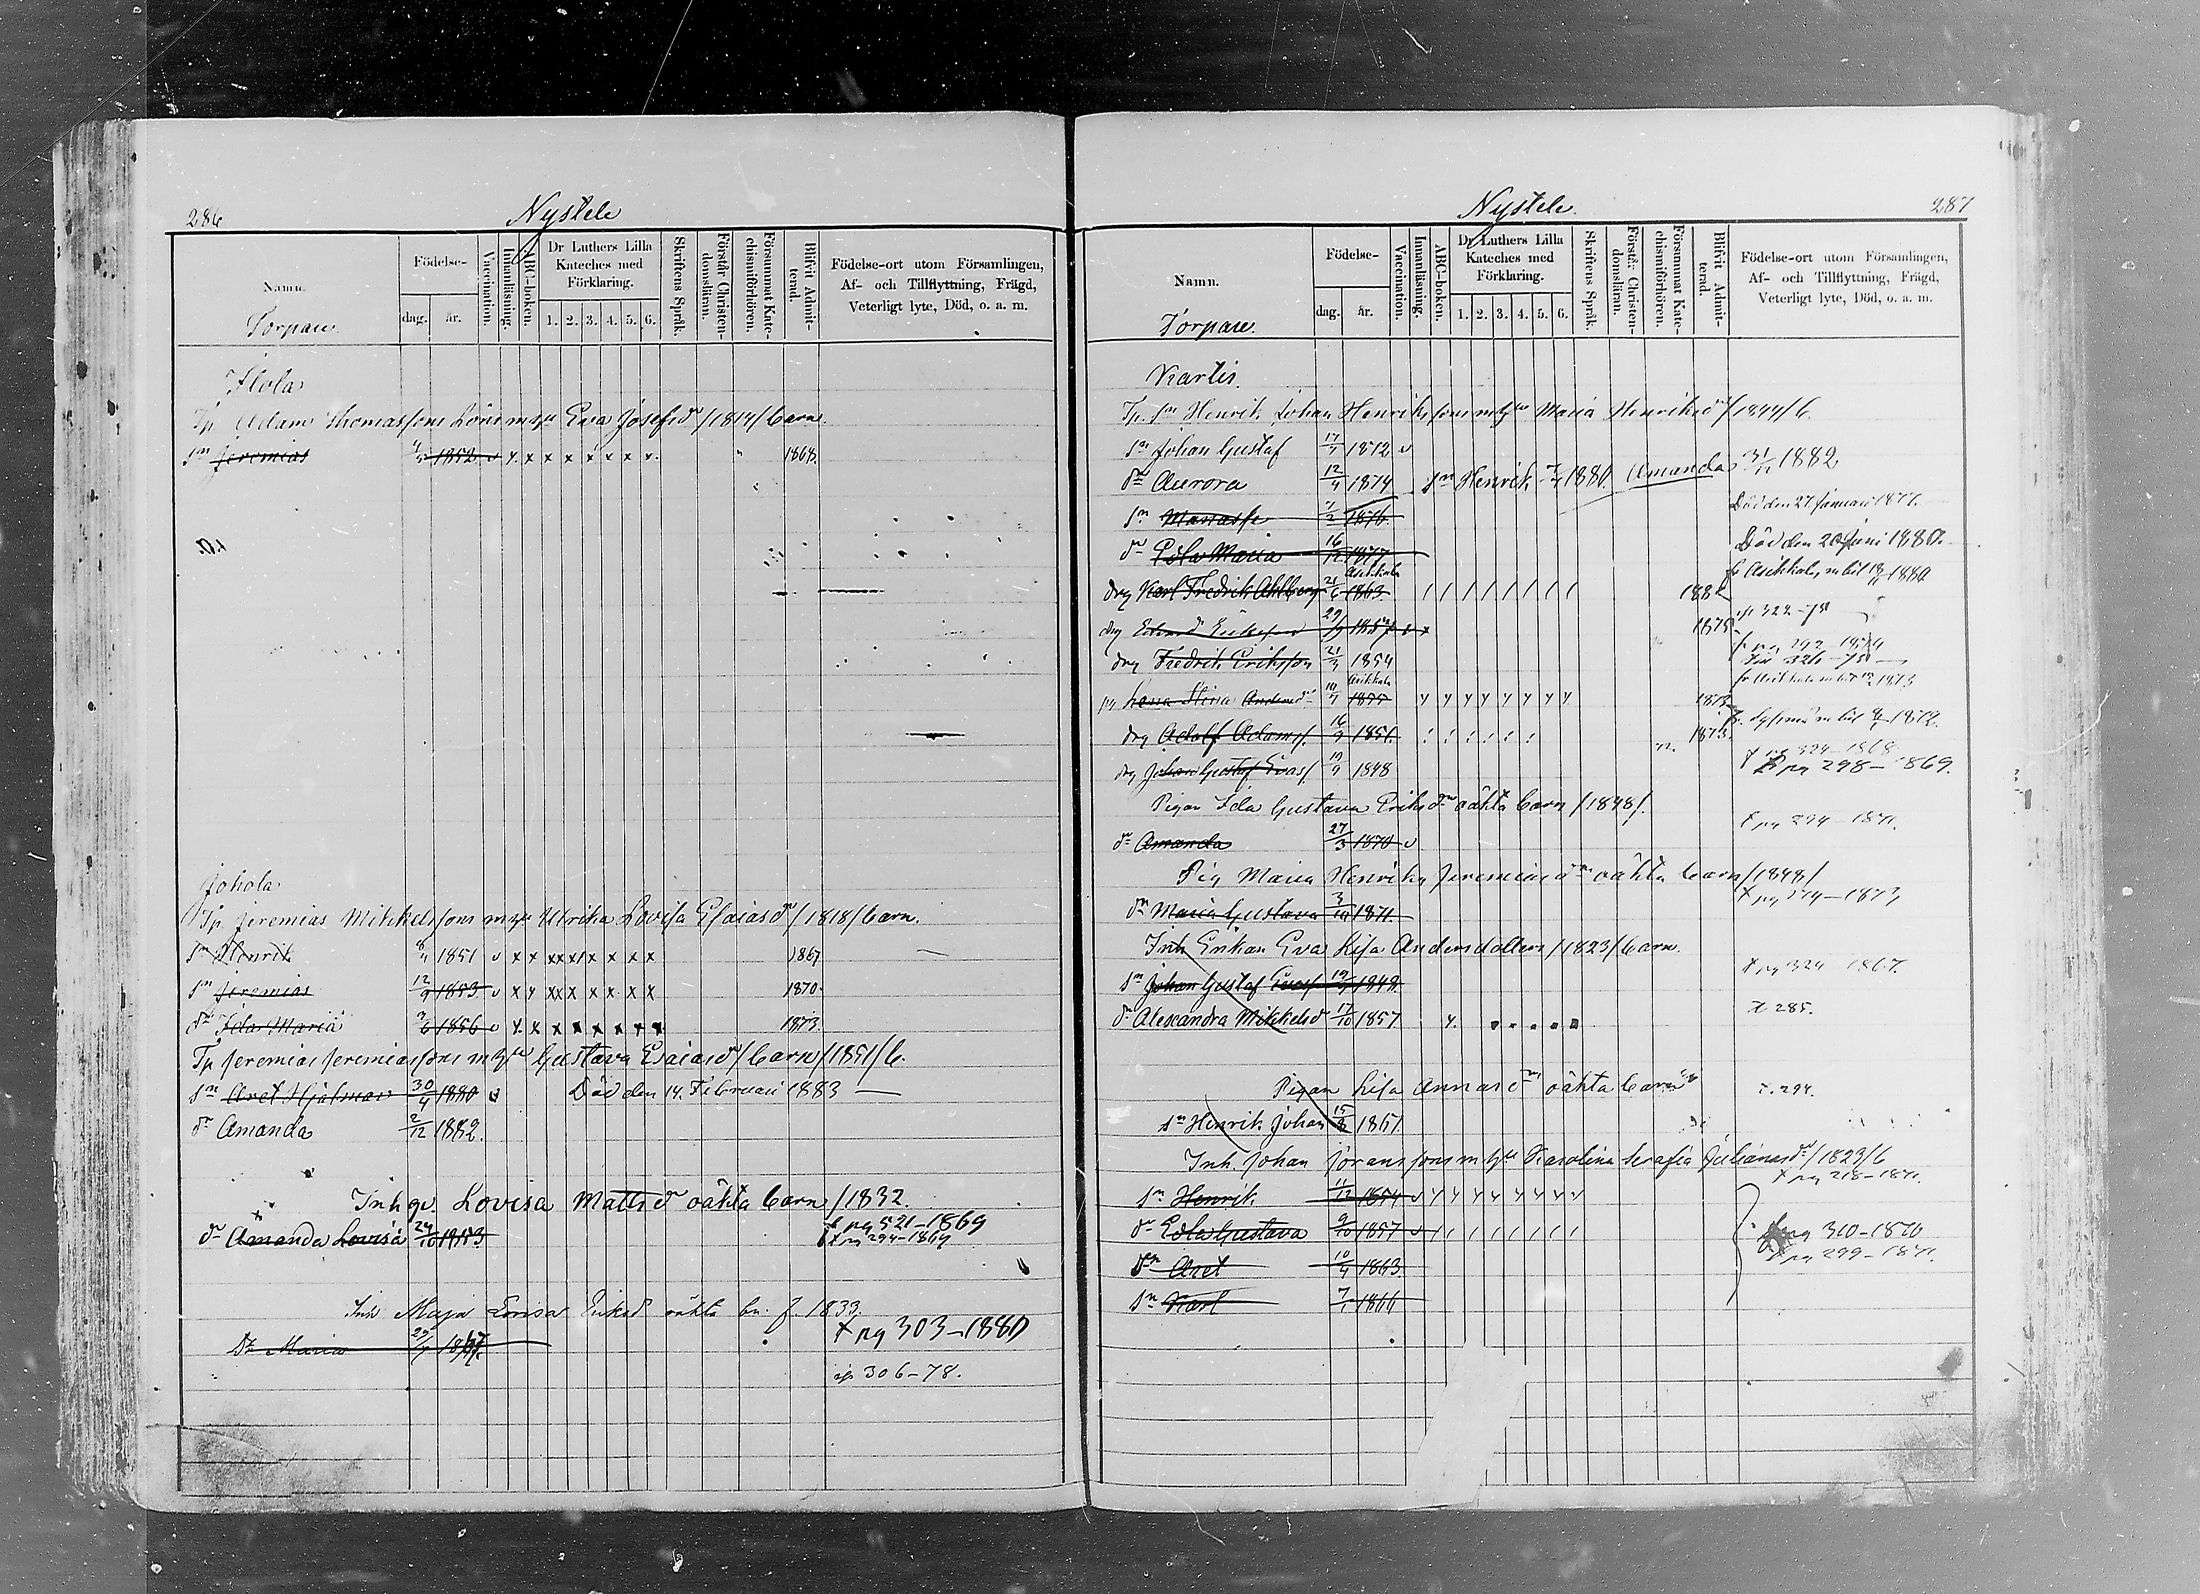 286
Nystele
Namn.
Torpare.
Födelse-
dag.
år.
Vaccination.
Innanläsning.
ABC-boken.
Dr Luthers Lilla
Kateches med
Förklaring.
1. 2. 3. 4. 5. 6.
Skriftens Språk.
Förstår Christen-
domsläran.
Försummat Kate-
chismiförhören.
Blifvit Admit-
terad.
Födelse-ort utom Församlingen,
Af- och Tillflyttning, Frägd,
Veterligt lyte, Död, o. a. m.
Ilola
Tp Adam Thomassons Löns m hu Eva Josefsdr /1814/ barn
sn Jeremias 1852 v x x x x x x x x 1868.
Johola
Tp Jeremias Mikkelssons m hu Ulrika Lovisa Esaiasdr /1818/ barn.
sn Henrik 8/4 1851 v x x xx x x x x x 1867
sn Jeremias 12/9 1853 v x x xx x x x x x 1870
dr Ida Maria 3/6 1856 v x x x x x x x x 1873
Tp Jeremias Jeremiassons m hu Gustava Esaiasdr /barn/ 1851/ b.
sn Axel Hjalmar 30/4 1880 v Död den 14. Februari 1883
dr Amanda 2/12 1882.
Inh qv. Lovisa Mattsdr oäkta barn /1832.
f pg 521-1869
dr Amanda Lovisa 24/10 1853 t pg 294-1869
Inh Maja Lovisa Eriksd oäkta bn. f. 1833.
t pg 303-1880
dr Maria 1867
ifr 306-78.
287
Nystele.
Namn.
Torpare.
Födelse-
dag.
år.
Vaccination.
Innanläsning.
ABC-boken.
Dr Luthers Lilla
Kateches med
Förklaring.
1. 2. 3. 4. 5. 6.
Skriftens Språk.
Förstår Christen-
domsläran.
Försummat Kate-
chismiförhören.
Blifvit Admit-
terad.
Födelse-ort utom Församlingen,
Af- och Tillflyttning, Frägd,
Veterligt lyte, Död, o. a. m.
Kartis.
Tp. sn Henrik Johan Henrikssons m hu Maria Henriksdr /1844/ b.
sn Johan Gustaf 17/7 1872 v
dr Aurora 12/4 1874 sn Henrik 1880 Amanda 31/12 1882
sn Manasse 7/2 1876 Död den 27 Januari 1877.
dr Edla Maria 16/12 1877 Död den 20 Juni 1880.
Asikkala
drg Karl Fredrik Ahlberg 21/6 1863 / / / / / / / / 1881 fr Asikkala m bet 1880
drg Edvard Eriksson 29/9 1857 v x 1875 ifr 322-78
drg Fredrik Eriksson 21/3 1854
Till 326-75
Asikkala
pig Lena Stina Andersdr 10/7 1855 fr Asikkala m bet 1873
drg Adolf Adamss. 16/9 1851. 1873. fr. Sysmä m bet 1872.
t pg 324-1868
drg Johan Gustaf Evass. 19/9 1848 f pg 298-1869.
Pigan Ida Gustava Eriksdrs oäkta barn /1848/.
dr Amanda 27/3 1870 v t pg 294-1871.
Pig Maria Henrika Jeremiasdrs oäkta barn /1848/
dr Maria Gustava 3/10 1871. t pg 379-1873
Inh Enkan Eva Lisa Andersdotters /1823/ barn.
sn Johan Gustaf Evass 19/9 1848. t pg 324 1867.
dr Alexandra Mikkelsd 17/10 1857 t 285.
Pigan Lisa Annasdrs oäkta barn
sn Henrik Johan 15/8 1867 t. 294.
Inh. Johan Göranssons m hu Karolina Serafia Juliänasdr /1829/ b
t pg 218-1871.
sn Henrik 11/12 1854 v
dr Edla Gustava 9/10 1857 v f pg 310-1870
dr Axel 10/4 1863. t pg 299-1871.
sn Karl 7/1 1866